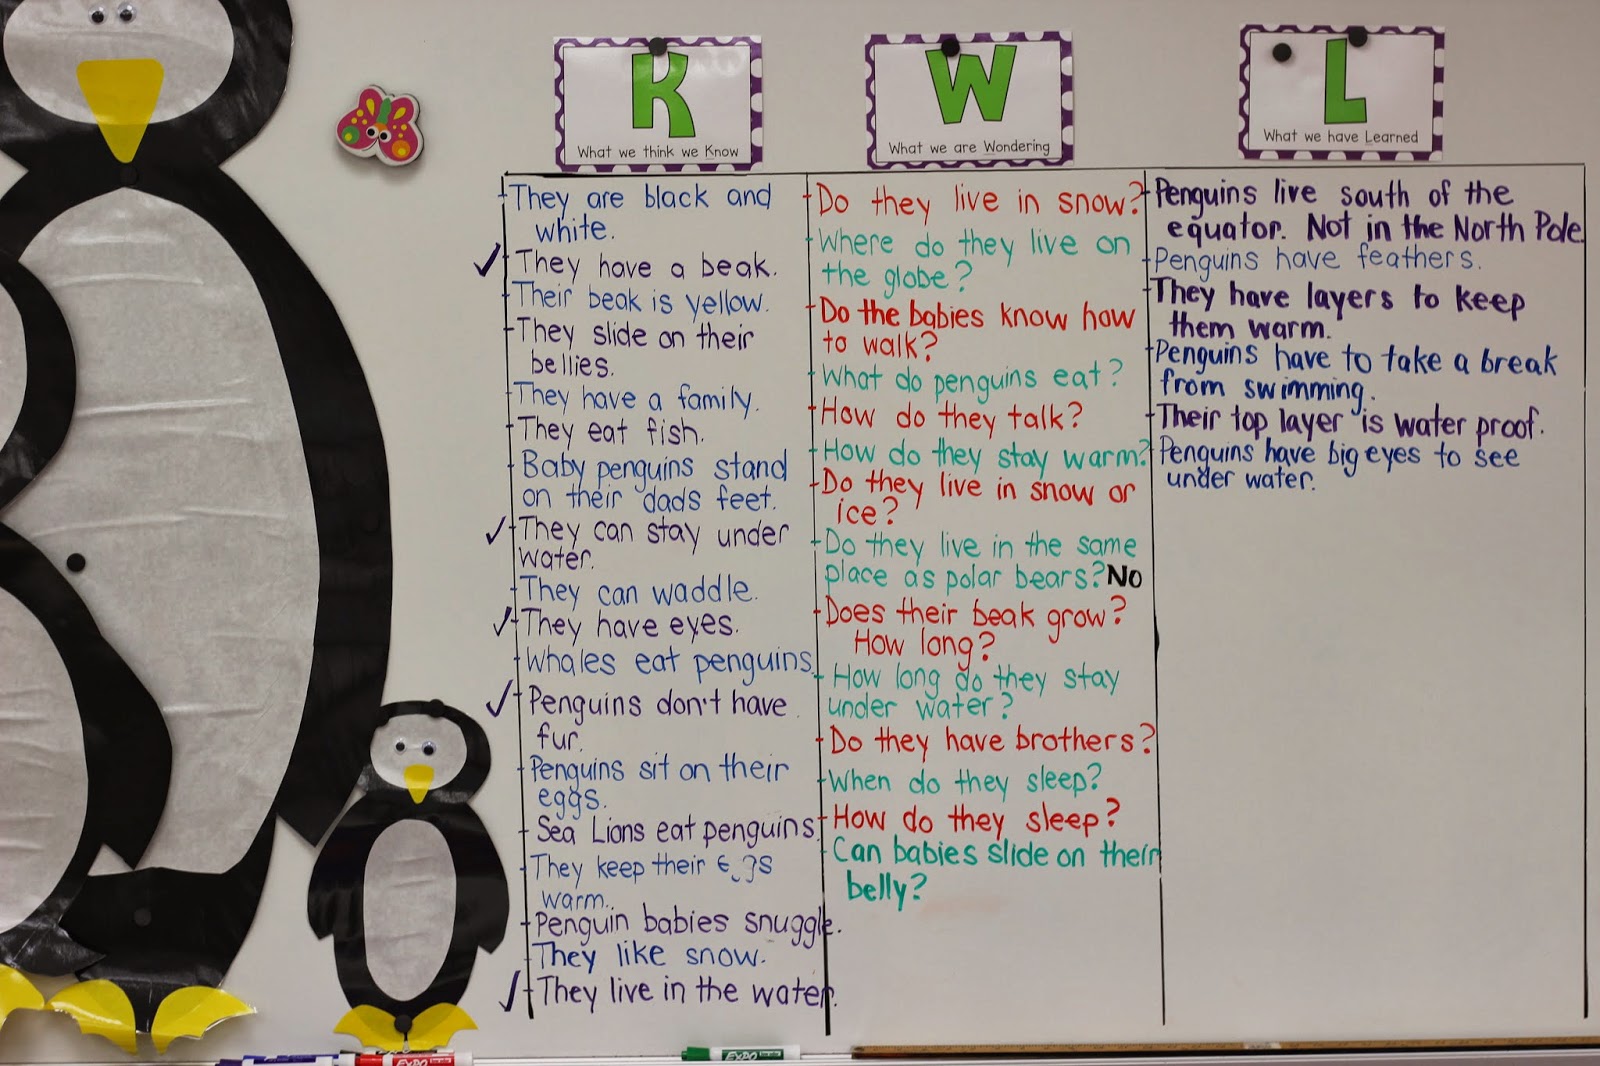 K
What we think we Know
They are black and
white.
They have a beak.
Their beak is yellow.
They slide on their
bellies.
They have a family.
They eat fish.
Baby penguins stand
on their dads feet.
They can stay under
water.
They can waddle.
They have eyes.
Whales eat penguins.
Penguins don't have
fur.
Penguins sit on their
eggs.
Sea Lions eat penguins.
They keep their eggs
warm.
Penguin babies snuggle.
They like snow.
They live in the water.
W
What we are Wondering
Do they live in snow?
Where do they live on
the globe?
Do the babies know how
to walk?
What do penguins eat?
How do they talk?
How do they stay warm?
Do they live in snow or
ice?
Do they live in the same
place as polar bears? No
Does their beak grow?
How long?
How long do they stay
under water?
Do they have brothers?
When do they sleep?
How do they sleep?
Can babies slide on their
belly?
L
What we have Learned
Penguins live south of the
equator. Not in the North Pole
Penguins have feathers.
They have layers to keep
them warm.
Penguins have to take a break
from swimming.
Their top layer is water proof.
Penguins have big eyes to see
under water.
EXPO
EXPO